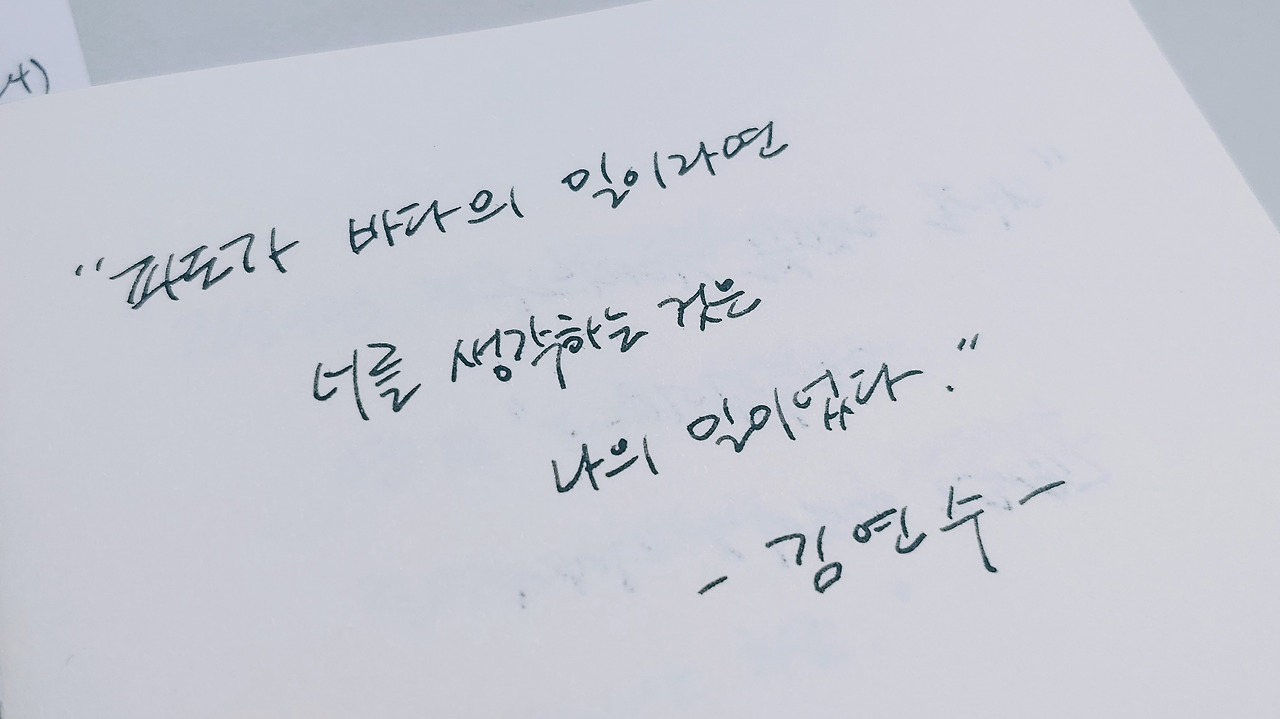 "파도가 바다의 일이라면
너를 생각하는 것은
나의 일이었다."
- 김연수 -